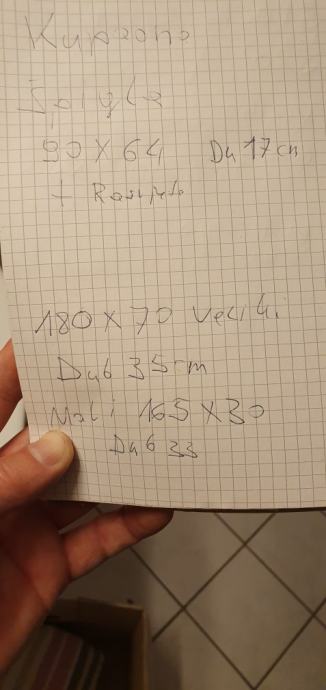 Kupaona
Špigla
90 X 64 Du 17cm
+ Rasvjeta
180 X 70 Veliki
Dub 35 cm
Mali 165 X 30
Dub 33